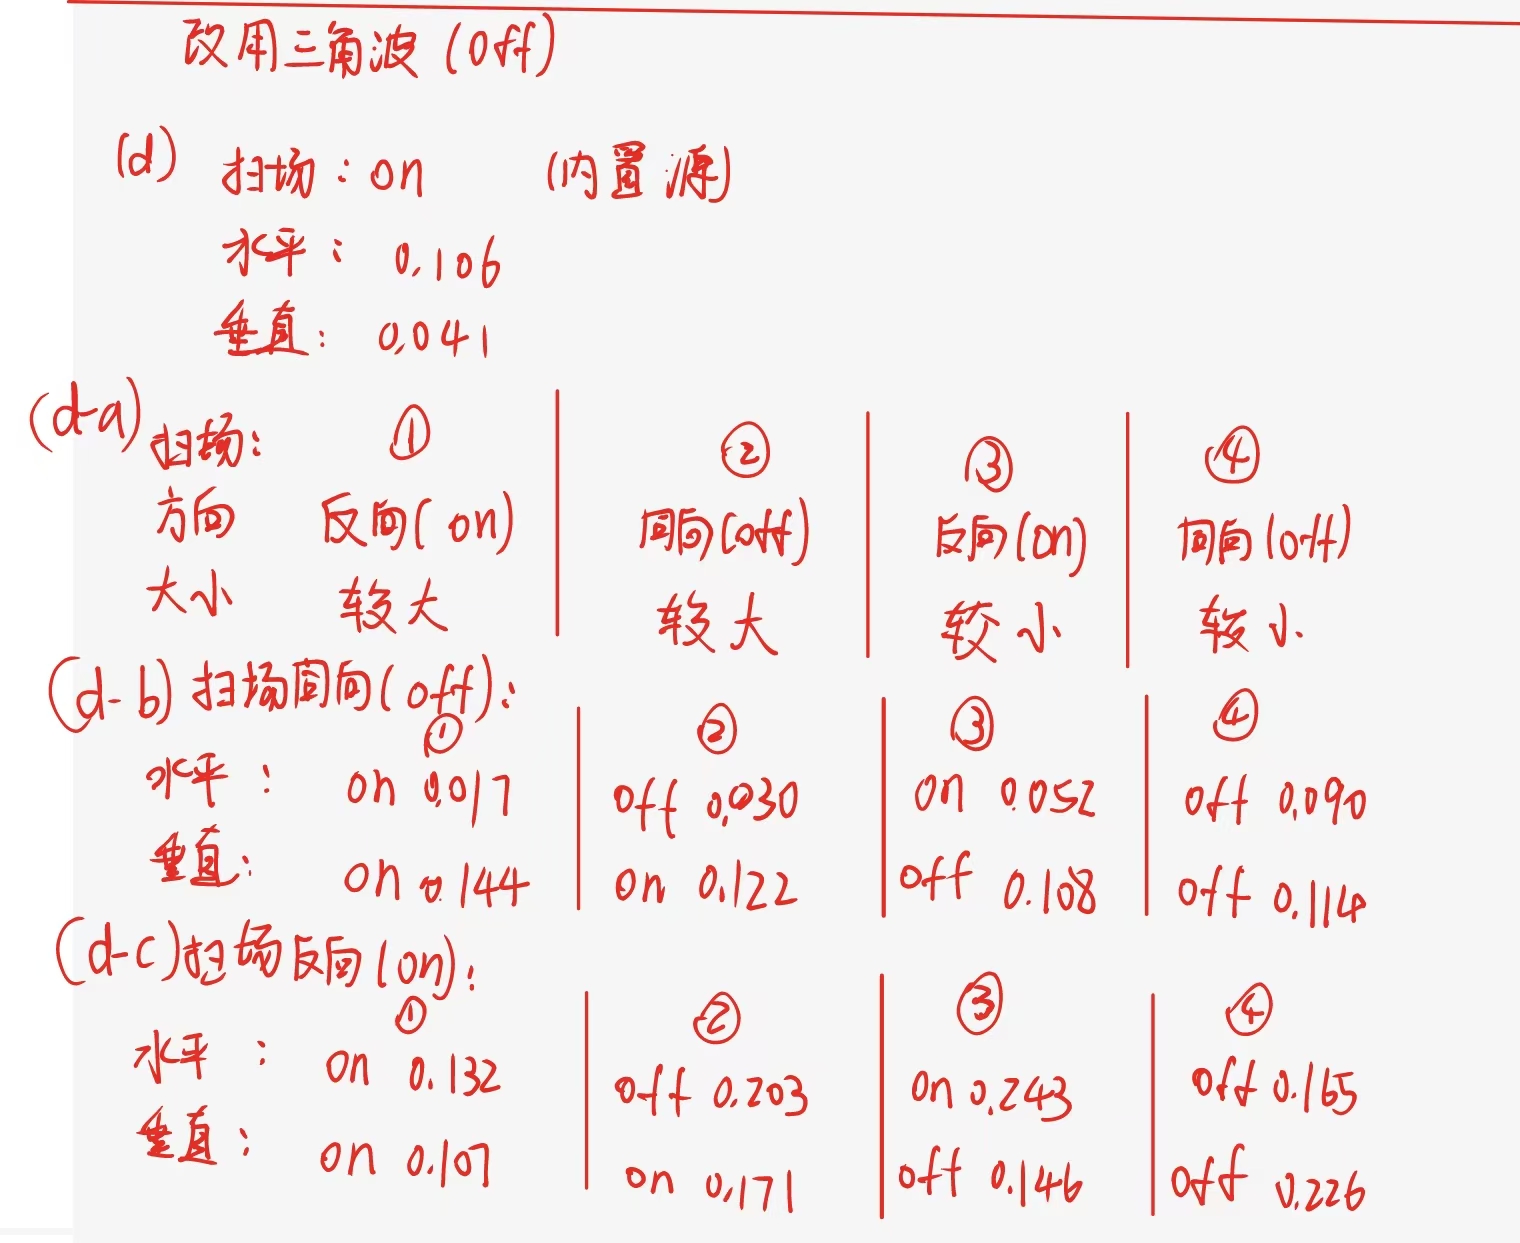 改用三角波 (off)
(d) 扫场：on (内置源)
水平： 0.106
垂直： 0.041
(d-a) 扫场： ① ② ③ ④
方向 反向(on) 同向(off) 反向(on) 同向(off)
大小 较大 较大 较小 较小
(d-b) 扫场同向(off)：
① ② ③ ④
水平： on 0.017 off 0.030 on 0.052 off 0.090
垂直： on 0.144 on 0.122 off 0.108 off 0.114
(d-c) 扫场反向(on)：
① ② ③ ④
水平： on 0.132 off 0.203 on 0.243 off 0.165
垂直： on 0.107 on 0.171 off 0.146 off 0.226